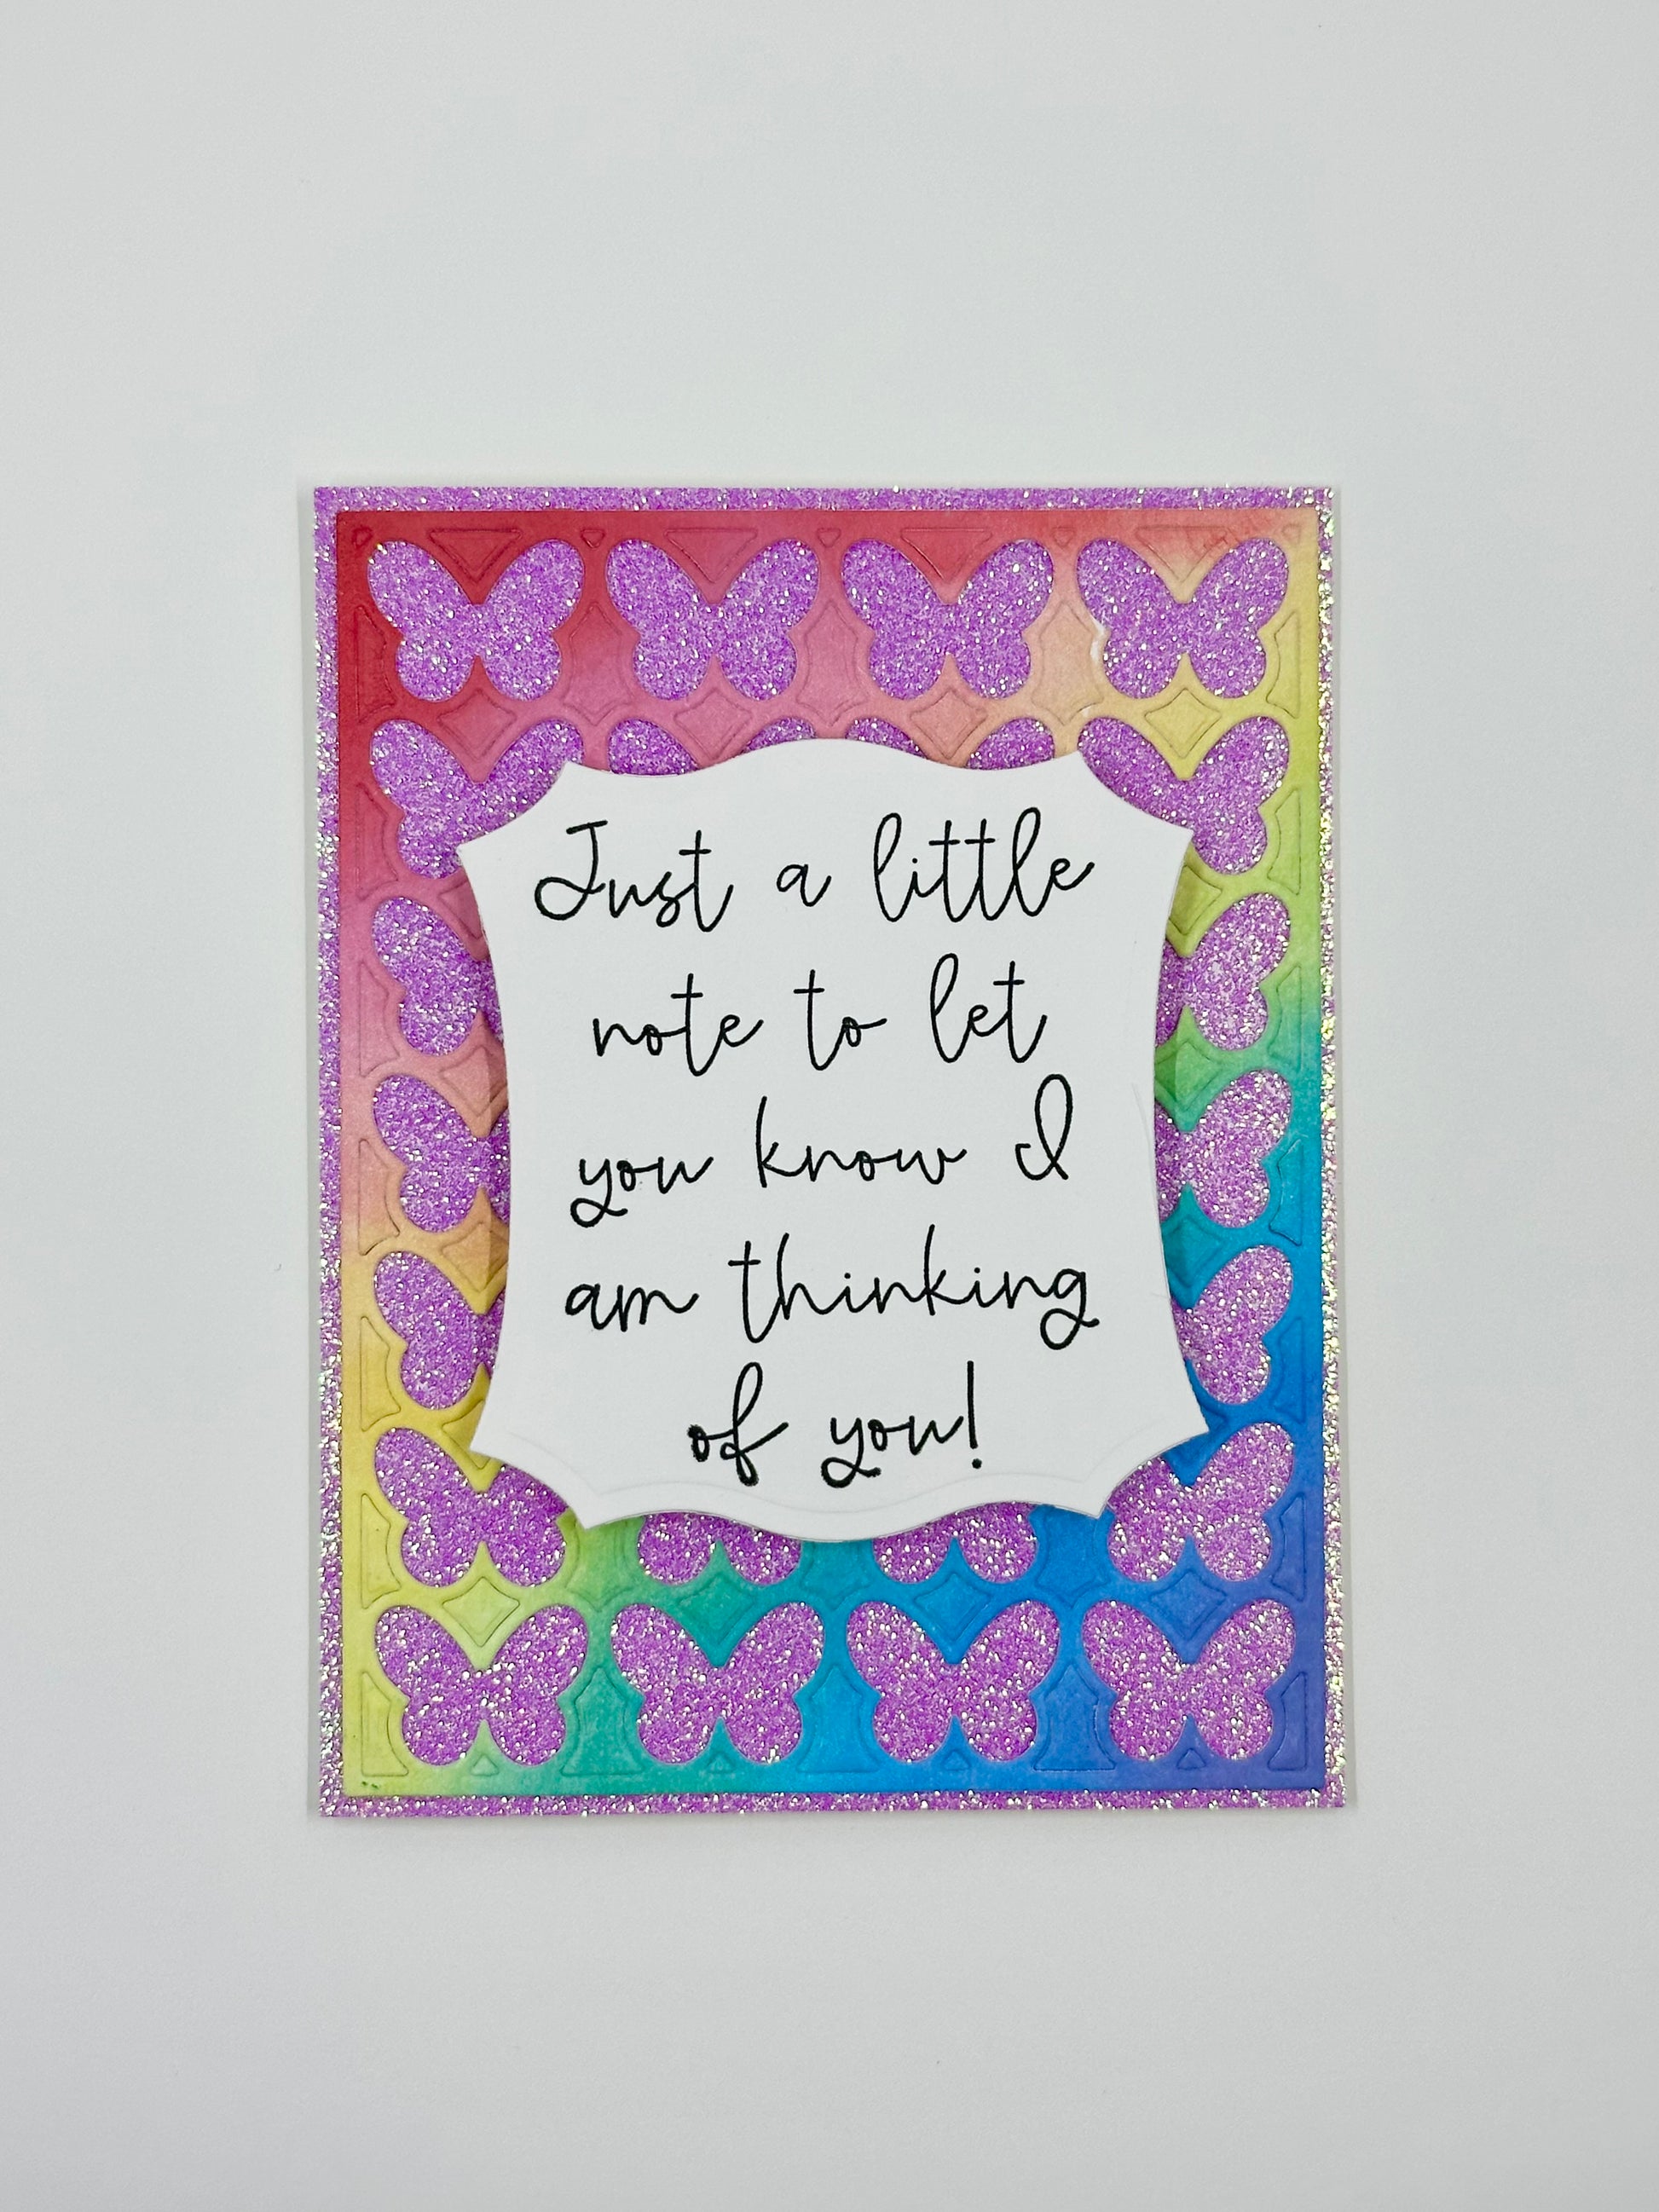 Just a little
note to let
you know I
am thinking
of you!